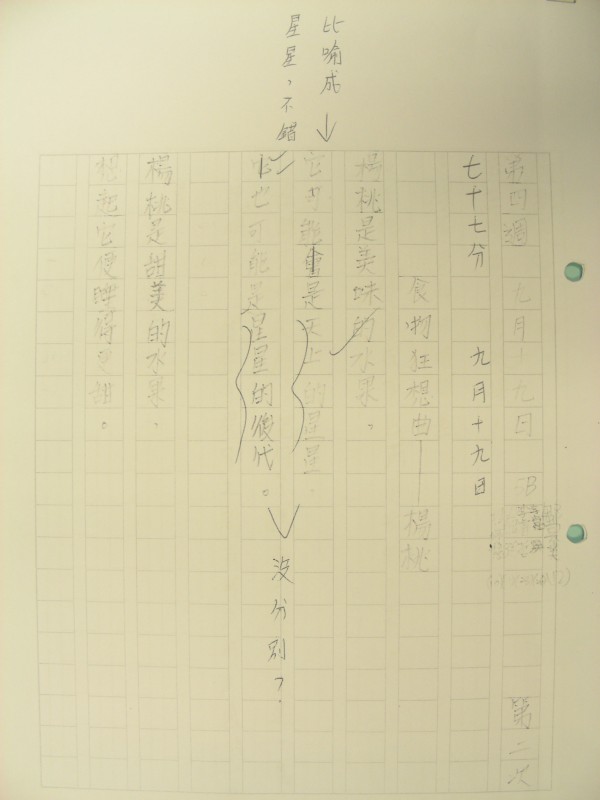 第四週 九月十九日 5B
第二次
七十七分 九月十九日
食物狂想曲——楊桃
楊桃是美味的水果，
它可能會是天上的星星，
它也可能是星星的後代。
楊桃是甜美的水果，
想起它便覺得更甜。
比喻成
星星，不錯
沒分別？